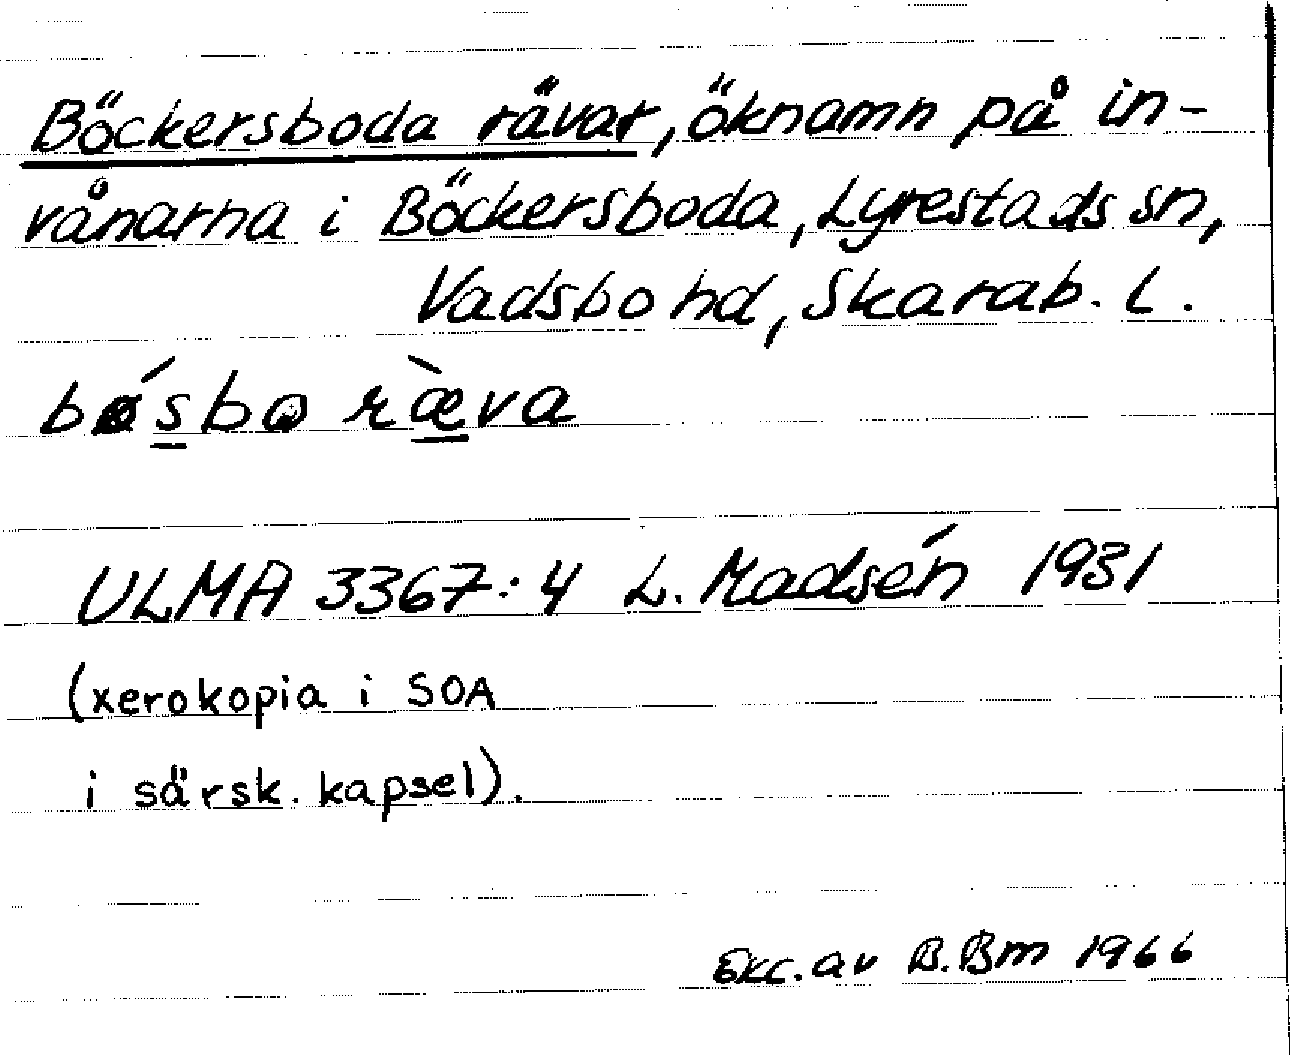 Böckersboda rävar, öknamn på in-
vånarna i Böckersboda, Lyrestads sn,
Vadsbo hd, Skarab. L.
bǿsbo ræ̀va
ULMA 3367:4 L. Madsén 1931
(xerokopia i SOA
i särsk. kapsel).
Exc. av B.Bm 1966